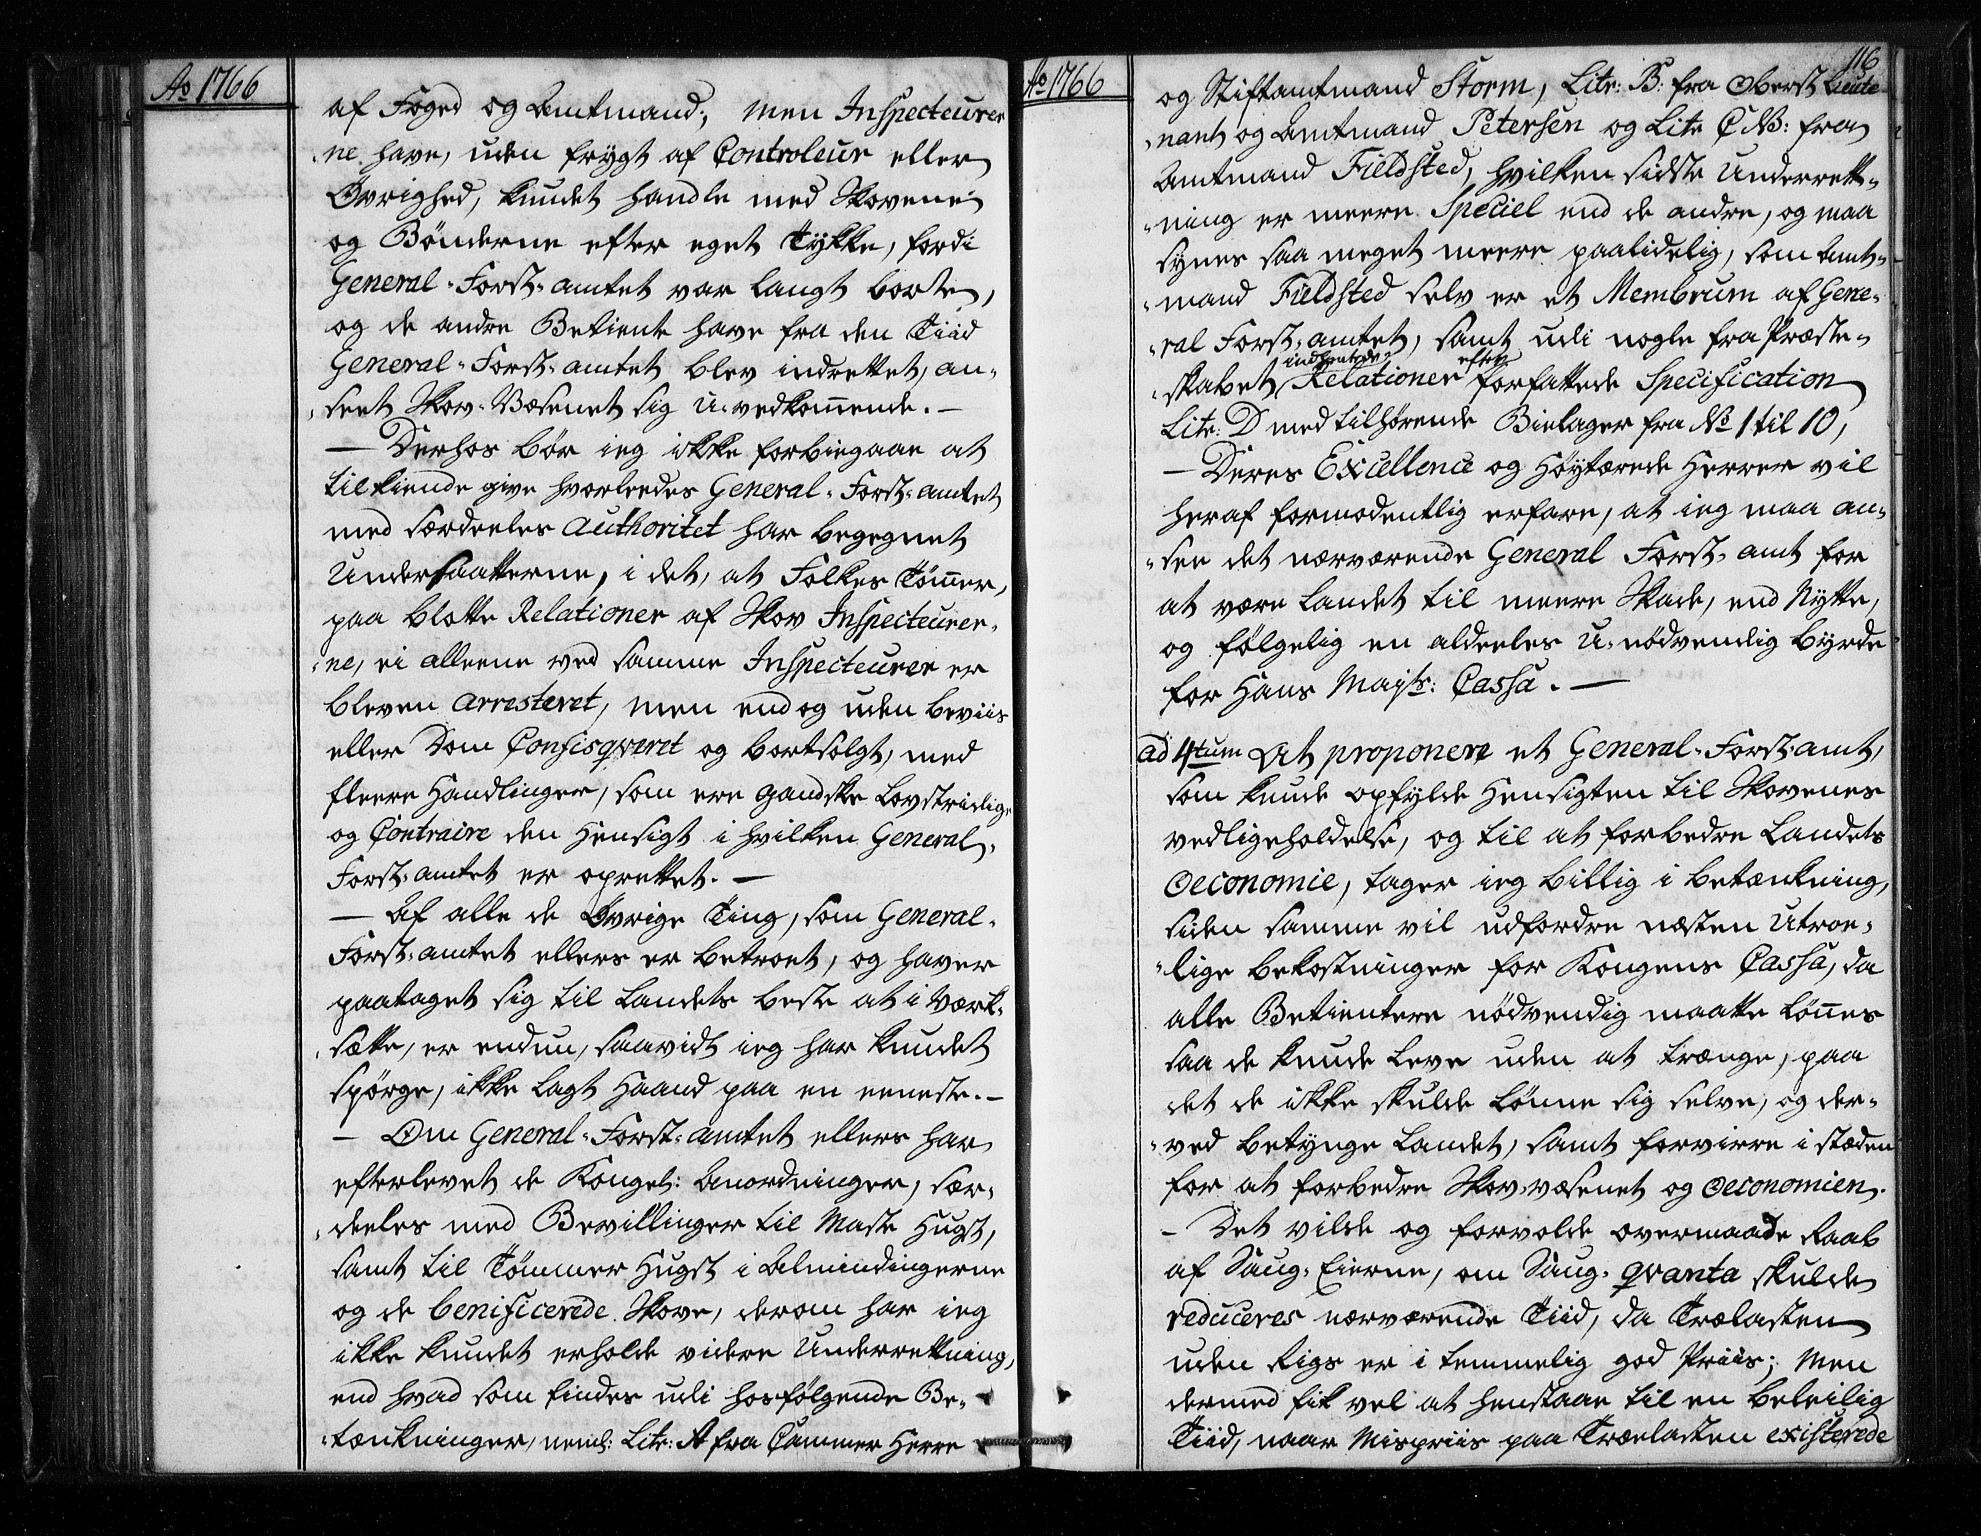 Ao 1766
af Foged og Amtmand, men Inspecteurer
-ne have, uden frygt af Controleur eller
Øvrighed, kundet handle med Skovene
og Bønderne efter eget Tykke, fordi
General-Forst-amtet var langt borte,
og de andre Betiente have fra den Tiid
General-Forst-amtet blev indrettet, an-
-seet Skov-Væsenet sig u-vedkommende.-
- Derhos bør ieg ikke forbiegaae at
tilkiende give hvorleedes General-Forst-amtet
med særdeeles authoritet har begegnet
Undersaatterne, i det, at Folkes Tømmer,
paa blotte Relationer af Skov Inspecteurer-
-ne, ei alleene ved samme Inspecteurer er
bleven arresteret, men end og uden beviis
eller Dom Confisqveret og bortsolgt, med
fleere Handlinger, som ere gandske Lovstridige
og Contraire den Hensigt i hvilken General-
Forst-amtet er oprettet. -
- Af alle de Øvrige Ting, som General-
Forst-amtet ellers er betroet, og haver
paataget sig til Landets beste at i værk-
-sætte, er endnu, saavidt ieg har kundet
spørge, ikke lagt Haand paa en eeneste.-
- Om General-Forst-amtet ellers har
efterlevet de Kongel: Anordninger, sær-
-deeles med Bevillinger til Maste Hugst,
samt til Tømmer Hugst i Almindingerne
og de benificerede Skove, derom har ieg
ikke kundet erholde videre Underretning,
end hvad som findes udi hosfølgende Be-
-tænkninger, neml: Litr: A fra Cammer Herre
Ao 1766
116
og Stiftamtmand Storm, Litr: B: fra Oberst Lieute
-nant og Amtmand Petersen og Litr C NB: fra
Amtmand Fieldsted, hvilken sidste Underrett-
-ning er meere Speciel end de andre, og maa
synes saa meget meere paalidelig, som Amt-
-mand Fieldsted selv er et Membrum af Gene-
-ral Forst-amtet, samt udi nogle fra Præste-
indhentede efter
-skabet Relationer forfattede Specification
Litr: D med tilhørende Bielager fra No 1 til 10,
- Deres Excellence og Høytærede Herrer vil
heraf formodentlig erfare, at ieg maa an-
-see det nærværende General Forst-amt for
at være Landet til meere Skade, end Nytte,
og følgelig en aldeeles u-nødvendig byrde
for Hans Majts: Cassa. -
ad 4tum At proponere et General-Forst-amt,
som kunde opfylde Hensigten til Skovenes
vedligeholdelse, og til at forbedre Landets
Oeconomie, tager ieg billig i betænkning,
siden samme vil udfordre næsten Utroe-
-lige bekostninger for Kongens Cassa, da
alle Betientere nødvendig maatte lønnes
saa de kunde leve uden at trænge, paa
det de ikke skulde lønne sig selve, og der-
-ved betynge Landet, samt forvirre i stæden
for at forbedre Skov-væsenet og Oeconomien.
- Det vilde og forvolde overmaade Raab
af Saug-Eierne, om Saug-qvanta skulde
reduceres nærværende Tiid, da Trælasten
uden Rigs er i temmelig god Priis; Men
dermed fik vel at henstaae til en beleilig
Tiid, naar Mispriis paa Trælasten existerede